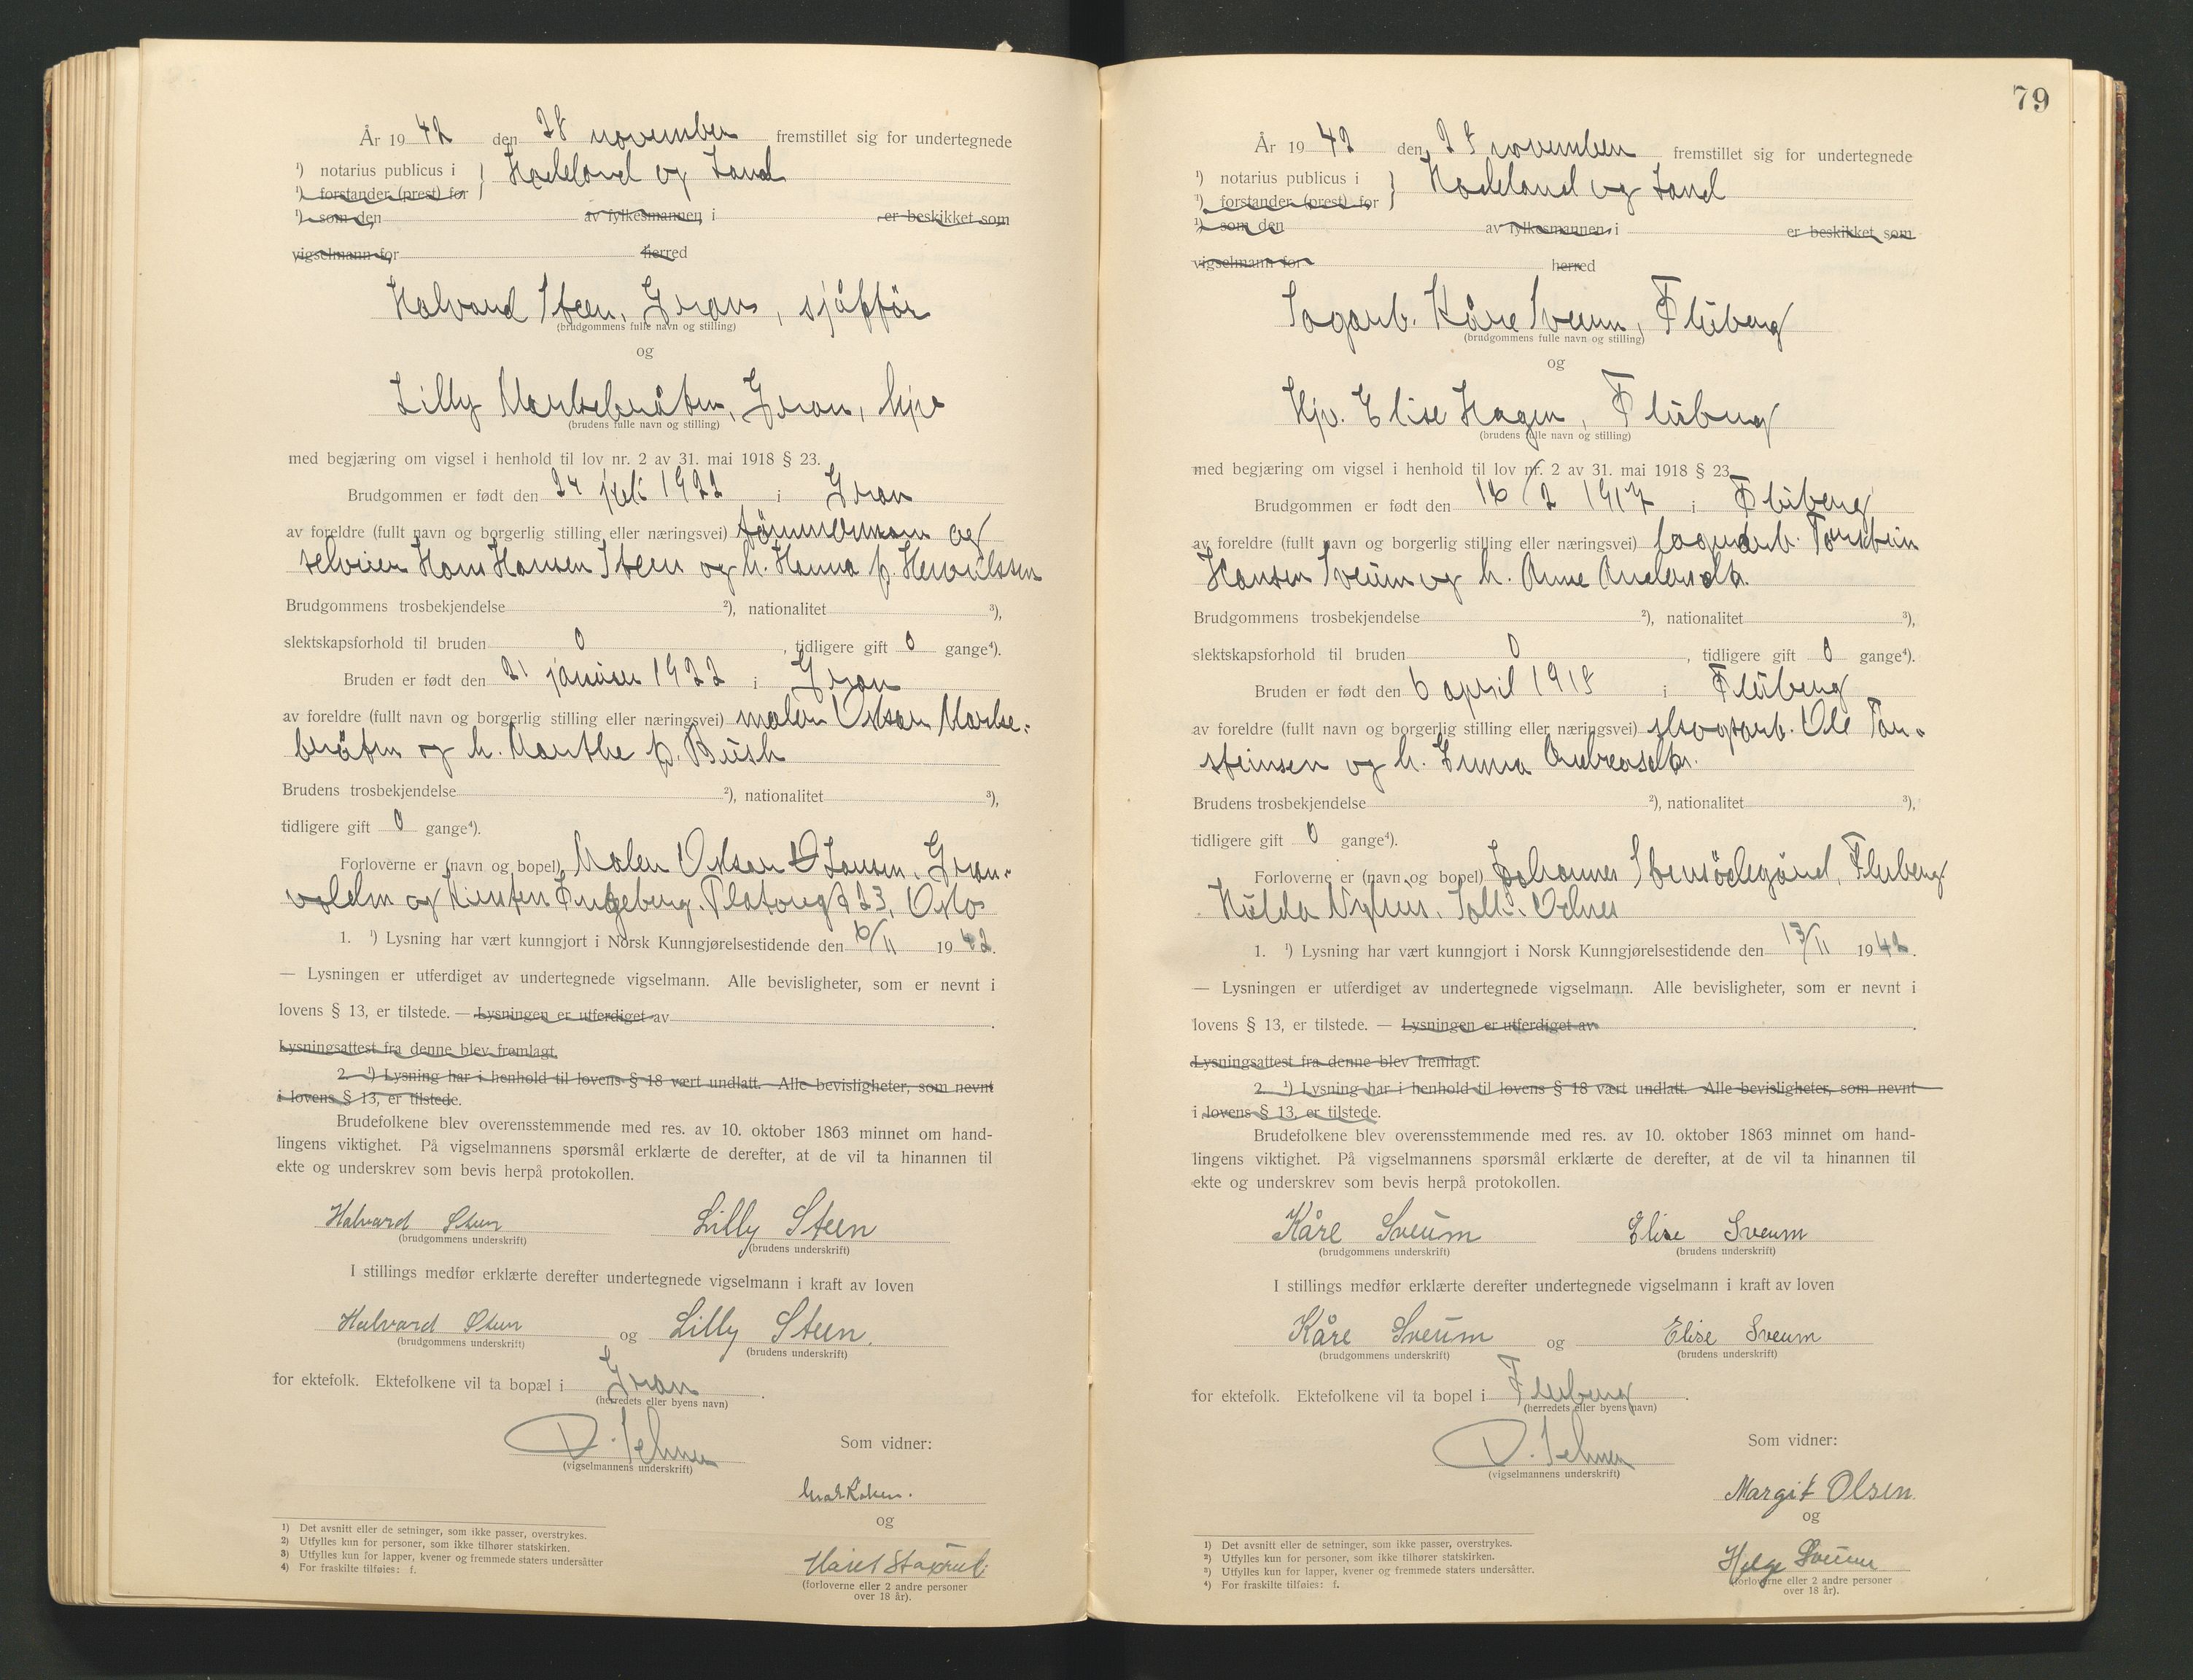 År 19 42 den 28 november fremstillet sig for undertegnede
¹) notarius publicus i } Hadeland og Land
¹) forstander (prest) for
¹) som den av fylkesmannen i er beskikket som
vigselmann for herred
Halvard Steen, Gran, sjåffør
(brudgommens fulle navn og stilling)
og
Lilly Markebråten, Gran, hjv
(brudens fulle navn og stilling)
med begjæring om vigsel i henhold til lov nr. 2 av 31. mai 1918 § 23.
Brudgommen er født den 24 1922 i Gran
av foreldre (fullt navn og borgerlig stilling eller næringsvei) tømmermann og
selveier Hans Hansen Steen og h. Hanna f. Henriksen
Brudgommens trosbekjendelse ²), nationalitet ³),
slektskapsforhold til bruden 0 , tidligere gift 0 gange⁴).
Bruden er født den 21 januar 1922 i Gran
av foreldre (fullt navn og borgerlig stilling eller næringsvei) maler Oskar Marke-
bråten og h. Marthe f. Busk
Brudens trosbekjendelse ²), nationalitet ³),
tidligere gift 0 gange⁴).
Forloverne er (navn og bopel) Maler Oskar O Gran-
volden og Kirsten Engeberg. 23, Oslo
1. ¹) Lysning har vært kunngjort i Norsk Kunngjørelsestidende den 6/11 19 42.
— Lysningen er utferdiget av undertegnede vigselmann. Alle bevisligheter, som er nevnt i
lovens § 13, er tilstede. — Lysningen er utferdiget av .
Lysningsattest fra denne blev fremlagt.
2. ¹) Lysning har i henhold til lovens § 18 vært undlatt. Alle bevisligheter, som nevnt
i lovens § 13, er tilstede.
Brudefolkene blev overensstemmende med res. av 10. oktober 1863 minnet om hand-
lingens viktighet. På vigselmannens spørsmål erklærte de derefter, at de vil ta hinannen til
ekte og underskrev som bevis herpå protokollen.
Halvard Steen Lilly Steen
(brudgommens underskrift) (brudens underskrift)
I stillings medfør erklærte derefter undertegnede vigselmann i kraft av loven
Halvard Steen og Lilly Steen.
(brudgommens underskrift) (brudens underskrift)
for ektefolk. Ektefolkene vil ta bopæl i Gran .
(herredets eller byens navn)
(vigselmannens underskrift)
Som vidner:
og
(forloverne eller 2 andre personer
over 18 år).
¹) Det avsnitt eller de setninger, som ikke passer, overstrykes.
²) Utfylles kun for personer, som ikke tilhører statskirken.
³) Utfylles kun for lapper, kvener og fremmede staters undersåtter
⁴) For fraskilte tilføies: f.
79
År 19 42 den 28 november fremstillet sig for undertegnede
¹) notarius publicus i } Hadeland og Land
¹) forstander (prest) for
¹) som den av fylkesmannen i er beskikket som
vigselmann for herred
Sagarb. Kåre Sveum, Fluberg
(brudgommens fulle navn og stilling)
og
Hjv. Elise Hagen, Fluberg
(brudens fulle navn og stilling)
med begjæring om vigsel i henhold til lov nr. 2 av 31. mai 1918 § 23.
Brudgommen er født den 16/2 1917 i Fluberg
av foreldre (fullt navn og borgerlig stilling eller næringsvei) Torstein
Hansen Sveum og h. Anne Andersdtr.
Brudgommens trosbekjendelse ²), nationalitet ³),
slektskapsforhold til bruden 0 , tidligere gift 0 gange⁴).
Bruden er født den 6 april 1918 i Fluberg
av foreldre (fullt navn og borgerlig stilling eller næringsvei) skogsarb. Ole Tor-
steinsen og h. Emma Andreasdtr.
Brudens trosbekjendelse ²), nationalitet ³),
tidligere gift 0 gange⁴).
Forloverne er (navn og bopel) Johannes Stensødegård, Fluberg
Hilda Nyhus, Odnes
1. ¹) Lysning har vært kunngjort i Norsk Kunngjørelsestidende den 13/11 19 42.
— Lysningen er utferdiget av undertegnede vigselmann. Alle bevisligheter, som er nevnt i
lovens § 13, er tilstede. — Lysningen er utferdiget av .
Lysningsattest fra denne blev fremlagt.
2. ¹) Lysning har i henhold til lovens § 18 vært undlatt. Alle bevisligheter, som nevnt
i lovens § 13, er tilstede.
Brudefolkene blev overensstemmende med res. av 10. oktober 1863 minnet om hand-
lingens viktighet. På vigselmannens spørsmål erklærte de derefter, at de vil ta hinannen til
ekte og underskrev som bevis herpå protokollen.
Kåre Sveum Elise Sveum
(brudgommens underskrift) (brudens underskrift)
I stillings medfør erklærte derefter undertegnede vigselmann i kraft av loven
Kåre Sveum og Elise Sveum
(brudgommens underskrift) (brudens underskrift)
for ektefolk. Ektefolkene vil ta bopel i Fluberg .
(herredets eller byens navn)
(vigselmannens underskrift)
Som vidner:
Margit Olsen
og
Helge Sveum
(forloverne eller 2 andre personer
over 18 år).
¹) Det avsnitt eller de setninger, som ikke passer, overstrykes.
²) Utfylles kun for personer, som ikke tilhører statskirken.
³) Utfylles kun for lapper, kvener og fremmede staters undersåtter.
⁴) For fraskilte tilføies: f.